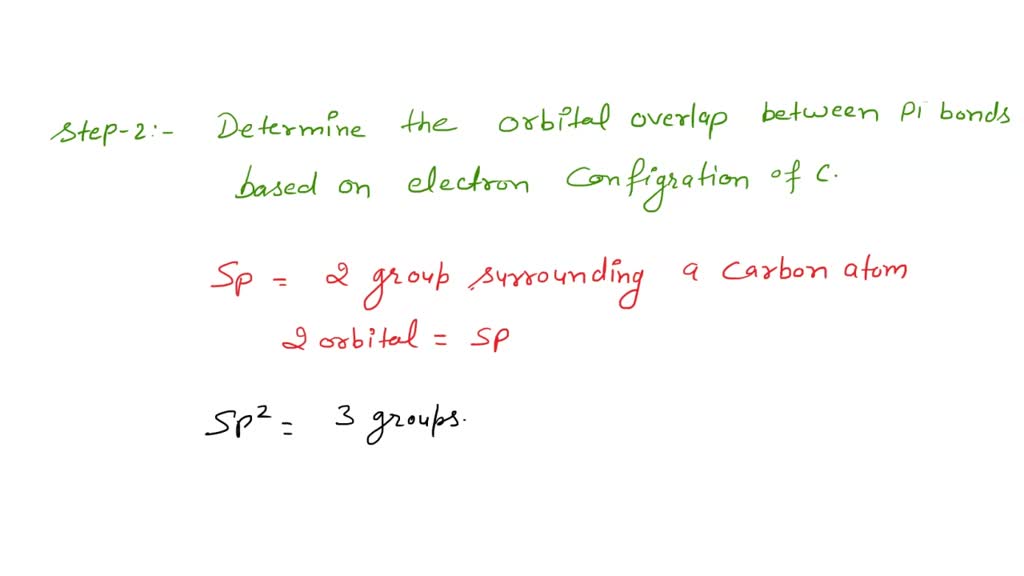 Step-2:- Determine the orbital overlap between pi bonds
based on electron Configration of C.
Sp = 2 group surrounding a carbon atom
2 orbital = sp
Sp² = 3 groups.